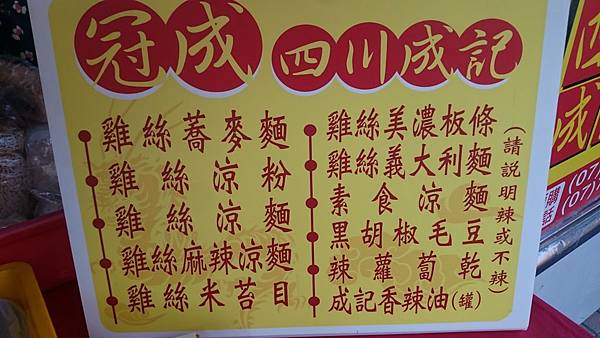 冠成 四川成記
雞絲蕎麥麵
雞絲涼粉
雞絲涼麵
雞絲麻辣涼麵
雞絲米苔目
雞絲美濃板條
雞絲義大利麵
素食涼麵
黑胡椒毛豆
辣蘿蔔乾
成記香辣油(罐)
(請説明辣或不辣)
(07)
(07)